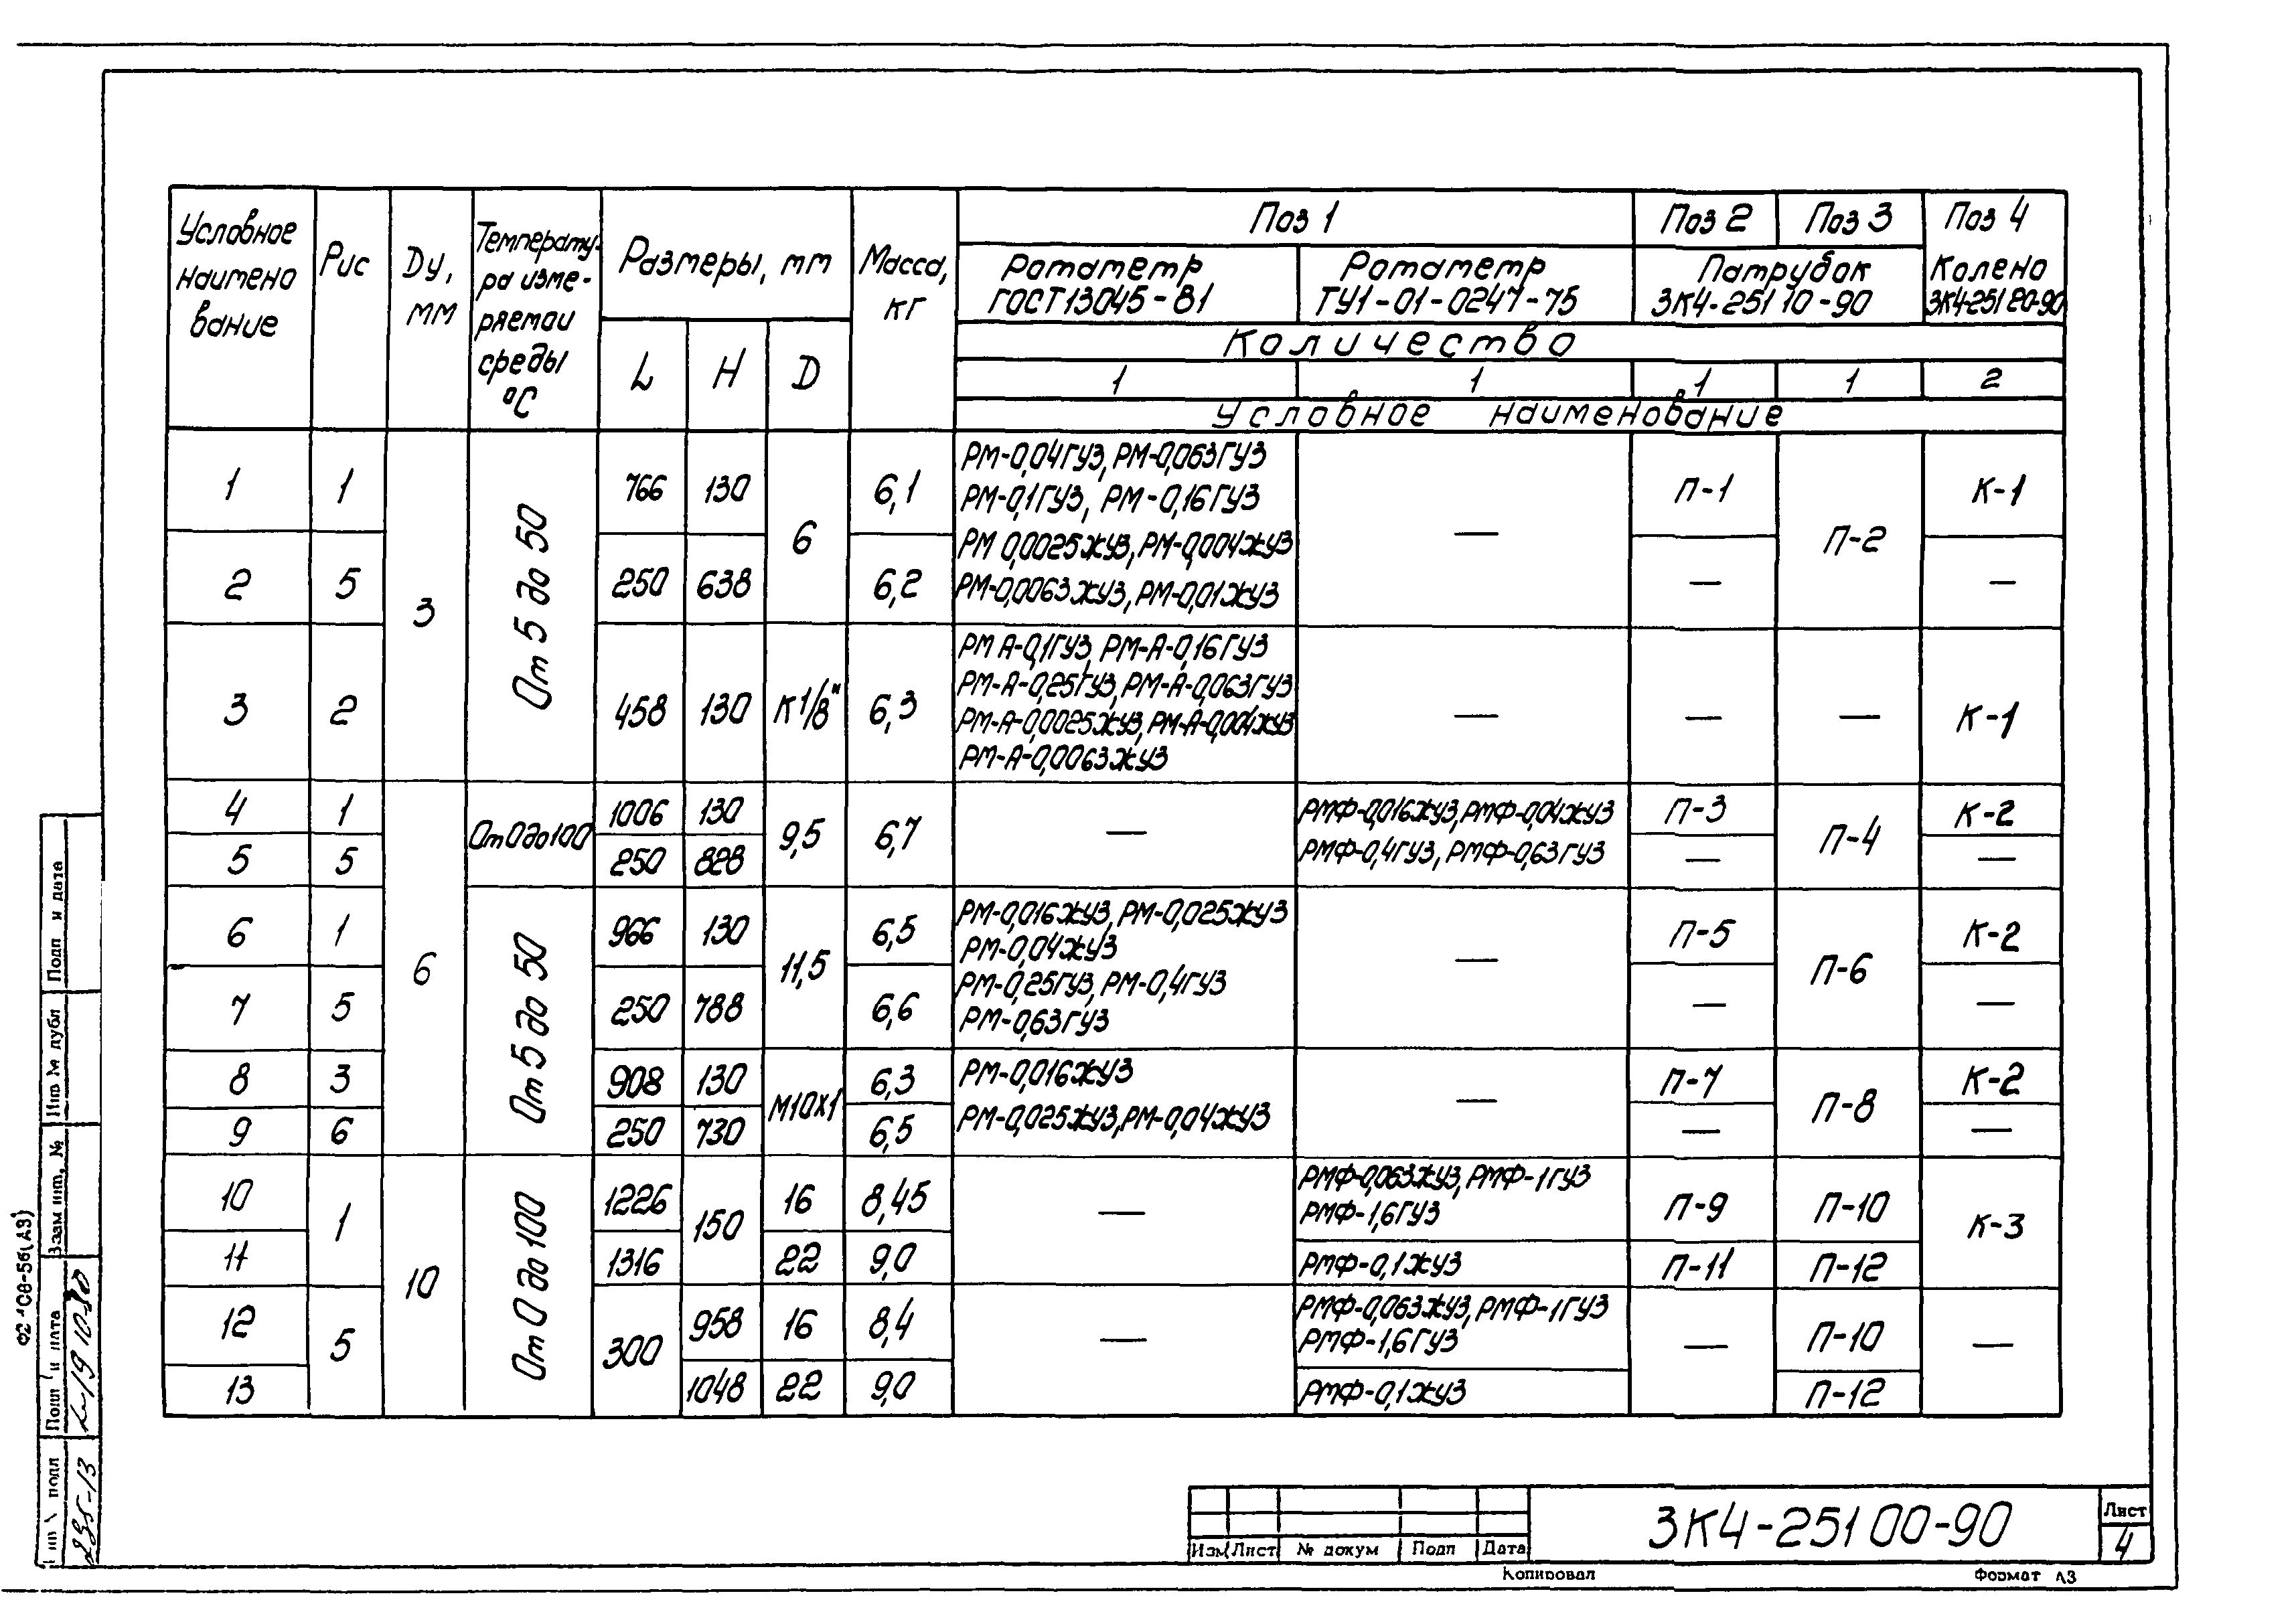 Условное наименование
Рис
Dу, мм
Температура измеряемой среды °С
Размеры, мм
L
H
D
Масса, кг
Поз 1
Поз 2
Поз 3
Поз 4
Ротаметр ГОСТ 13045-81
Ротаметр ТУ1-01-0247-75
Патрубок ЗК4-251 10-90
Колено ЗК4-251 20-90
Количество
1 1 1 1 2
Условное наименование
1 1 3 От 5 до 50 766 130 6 6,1
РМ-0,04ГУЗ, РМ-0,063ГУЗ
РМ-0,1ГУЗ, РМ-0,16ГУЗ
РМ 0,0025ЖУЗ, РМ-0,004ЖУЗ
РМ-0,0063ЖУЗ, РМ-0,01ЖУЗ
— П-1 П-2 К-1
2 5 250 638 6,2 — —
3 2 458 130 К 1/8" 6,3
РМ А-0,1ГУЗ, РМ-А-0,16ГУЗ
РМ-А-0,25ГУЗ, РМ-А-0,063ГУЗ
РМ-А-0,0025ЖУЗ, РМ-А-0,004ЖУЗ
РМ-А-0,0063ЖУЗ
— — — К-1
4 1 6 От 0 до 100 1006 130 9,5 6,7 —
РМФ-0,016ЖУЗ, РМФ-0,04ЖУЗ
РМФ-0,4ГУЗ, РМФ-0,63ГУЗ
П-3 П-4 К-2
5 5 250 828 — —
6 1 От 5 до 50 966 130 11,5 6,5
РМ-0,016ЖУЗ, РМ-0,025ЖУЗ
РМ-0,04ЖУЗ
РМ-0,25ГУЗ, РМ-0,4ГУЗ
РМ-0,63ГУЗ
— П-5 П-6 К-2
7 5 250 788 6,6 — —
8 3 908 130 М10х1 6,3
РМ-0,016ЖУЗ
РМ-0,025ЖУЗ, РМ-0,04ЖУЗ
— П-7 П-8 К-2
9 6 250 730 6,5 — —
10 1 10 От 0 до 100 1226 150 16 8,45 —
РМФ-0,063ЖУЗ, РМФ-1ГУЗ
РМФ-1,6ГУЗ
П-9 П-10 К-3
11 1316 22 9,0 РМФ-0,1ЖУЗ П-11 П-12
12 5 300 958 16 8,4 —
РМФ-0,063ЖУЗ, РМФ-1ГУЗ
РМФ-1,6ГУЗ
— П-10 —
13 1048 22 9,0 РМФ-0,1ЖУЗ П-12
Подп и дата
Инв № дубл
Взам инв, №
Подп и дата
19 10 90
подл
295-13
Изм Лист № докум Подп Дата
ЗК4-251 00-90
Лист
4
Копировал
Формат А3